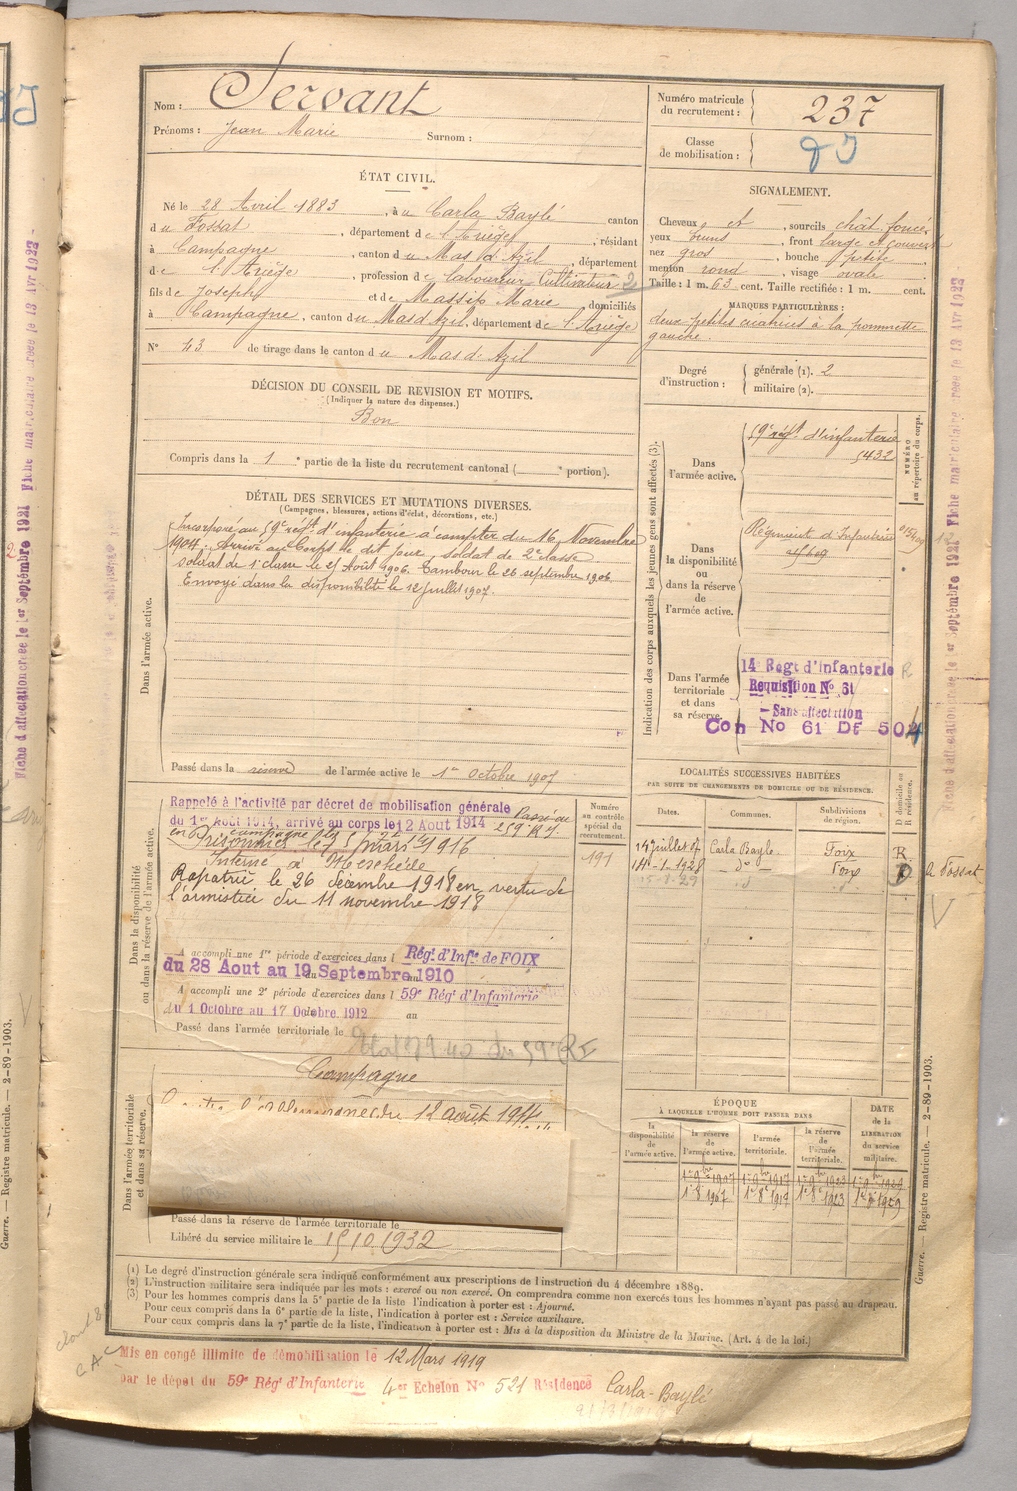 Nom : Servant
Prénoms : Jean Marie Surnom :
Numéro matricule du recrutement : 237
Classe de mobilisation :
ÉTAT CIVIL.
Né le 28 Avril 1883, à u Carla Baylé canton
d u Fossat, département d e l'Ariège, résidant
à Campagne, canton d u Mas d'Azil, département
d e l'Ariège, profession d e laboureur Cultivateur 2
fils d e Joseph et d e Massip Marie domiciliés
à Campagne, canton d u Mas d'Azil, département d e l'Ariège
N° 43 de tirage dans le canton d u Mas d'Azil
SIGNALEMENT.
Cheveux et, sourcils chât. foncé
yeux bruns, front large et couvert
nez gros, bouche petite
menton rond, visage ovale
Taille : 1 m. 63 cent. Taille rectifiée : 1 m. cent.
MARQUES PARTICULIÈRES :
deux petites cicatrices à la pommette
gauche.
Degré d'instruction : générale (1). 2
militaire (2).
DÉCISION DU CONSEIL DE REVISION ET MOTIFS.
(Indiquer la nature des dispenses.)
Bon
Compris dans la 1e partie de la liste du recrutement cantonal ( e portion).
DÉTAIL DES SERVICES ET MUTATIONS DIVERSES.
(Campagnes, blessures, actions d'éclat, décorations, etc.)
Dans l'armée active.
Incorporé au 59e régt d'infanterie à compter du 16 Novembre
1904. Arrivé au Corps le dit jour, soldat de 2e classe
soldat de 1e classe le 21 Août 1906. Tambour le 26 septembre 1906.
Envoyé dans la disponibilité le 12 juillet 1907.
Passé dans la réserve de l'armée active le 1er Octobre 1907
Indication des corps auxquels les jeunes gens sont affectés (3).
NUMÉRO au répertoire du corps.
Dans l'armée active.
59e régt d'infanterie
5432
Dans la disponibilité ou dans la réserve de l'armée active.
Régiment d'Infanterie
Dans l'armée territoriale et dans sa réserve.
14e Regt d'infanterie R
Requisition N° 61
- Sans affectation
Con No 61 Df 504
Dans la disponibilité ou dans la réserve de l'armée active.
Rappelé à l'activité par décret de mobilisation générale
du 1er Août 1914, arrivé au corps le 12 Aout 1914 Passé au
259e RI
en campagne
Prisonnier le mars 1916
Interné à Meschede
Rapatrié le 26 décembre 1918 en vertu de
l'armistice du 11 novembre 1918
A accompli une 1re période d'exercices dans l Régt d'Infie de FOIX
du 28 Aout au 19 Septembre 1910
A accompli une 2e période d'exercices dans l 59e Régt d'Infanterie
du 1 Octobre au 17 Octobre 1912 au
Passé dans l'armée territoriale le
Numéro au contrôle spécial du recrutement.
191
LOCALITÉS SUCCESSIVES HABITÉES
PAR SUITE DE CHANGEMENTS DE DOMICILE OU DE RÉSIDENCE.
Dates. Communes. Subdivisions de région. D domicile ou R résidence.
juillet 07 Carla Bayle. Foix R
14-1-1928 - d° - Foix A Fossat
Dans l'armée territoriale et dans sa réserve.
Campagne
Contre l'Allemagne du 12 août 1914
Passé dans la réserve de l'armée territoriale le
Libéré du service militaire le 15.10.1932
ÉPOQUE
À LAQUELLE L'HOMME DOIT PASSER DANS
la disponibilité de l'armée active. la réserve de l'armée active. l'armée territoriale. la réserve de l'armée territoriale. DATE de la LIBÉRATION du service militaire.
1er 8e 1907 1er 8e 1917 1er 8e 1923 1er 8e 1929
(1) Le degré d'instruction générale sera indiqué conformément aux prescriptions de l'instruction du 4 décembre 1889.
(2) L'instruction militaire sera indiquée par les mots : exercé ou non exercé. On comprendra comme non exercés tous les hommes n'ayant pas passé au drapeau.
(3) Pour les hommes compris dans la 5e partie de la liste l'indication à porter est : Ajourné.
Pour ceux compris dans la 6e partie de la liste, l'indication à porter est : Service auxiliaire.
Pour ceux compris dans la 7e partie de la liste, l'indication à porter est : Mis à la disposition du Ministre de la Marine. (Art. 4 de la loi.)
Mis en congé illimité de démobilisation le 12 Mars 1919
par le dépôt du 59e Régt d'Infanterie 4er Echelon N° 521 Résidence Carla-Baylé
Guerre. — Registre matricule. — 2-89-1903.
Guerre. — Registre matricule. — 2-89-1903.
Fiche d'affectation créée le 1er Septembre 1921 Fiche matriculaire créée le 13 Avr 1922 -
Fiche d'affectation créée le 1er Septembre 1921 Fiche matriculaire créée le 13 Avr 1922 -